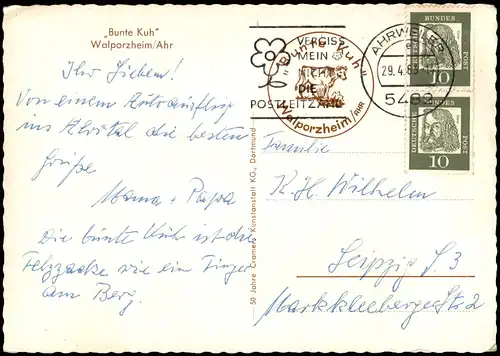 „Bunte Kuh"
Walporzheim/Ahr
Ihr Lieben!
Von einem Autoausflug
ins Ahrtal die besten
Grüße
Mama + Papa
Die bunte Kuh ist die
Felszacke wie ein Finger
am Berg.
50 Jahre Cramers Kunstanstalt KG., Dortmund
VERGISS
MEIN
NICHT
DIE
POSTLEITZAHL
"Bunte Kuh"
Walporzheim/AHR
AHRWEILER
29.4.
DEUTSCHE BUNDESPOST
10
DEUTSCHE BUNDESPOST
10
Familie
K. H. Wilhelm
Leipzig S 3
Markkleebergerstr. 2